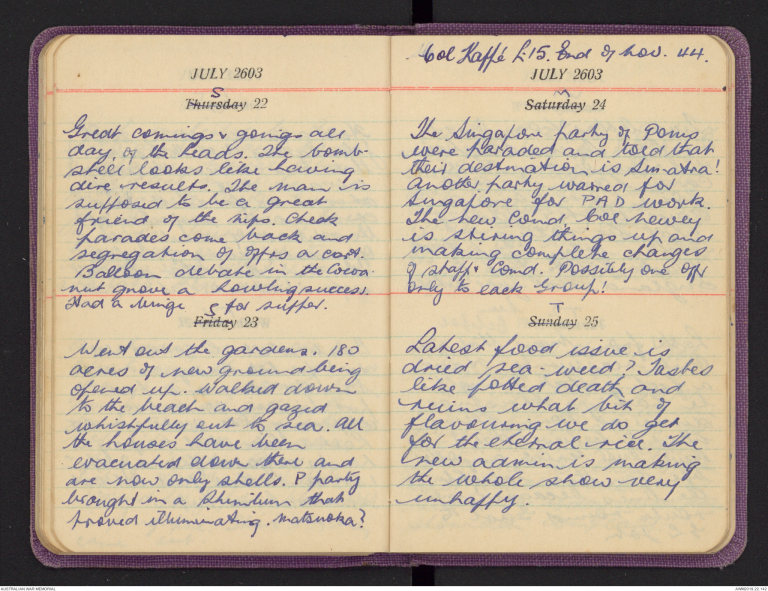 JULY 2603
S
Thursday 22
Great comings & goings all
day, of the heads. The bomb-
shell looks like having
dire results. The man is
supposed to be a great
friend of the nips. Check
parades come back and
segregation of offrs a cert.
Balloon debate in the Cocoa-
nut grove a howling success.
Had a binge for supper.
S
Friday 23
Went out the gardens. 180
acres of new ground being
opened up. Walked down
to the beach and gazed
whistfully out to sea. All
the houses have been
evacuated down there and
are now only shells. P party
brought in a that
proved illuminating. Matsuoka?
Col Kaffé £15. End of Nov. 44.
JULY 2603
Saturday 24
The Singapore party of Poms
were paraded and told that
their destination is Sumatra!
Another party warned for
Singapore for PAD work.
The new Comd, Col Newey
is stiring things up and
making complete changes
of staff & Comd. Possibly one offr
only to each Group!
T
Sunday 25
Latest food issue is
dried sea-weed? Tastes
like potted death and
ruins what bit of
flavouring we do get
for the eternal rice. The
new admin is making
the whole show very
unhappy.
AUSTRALIAN WAR MEMORIAL